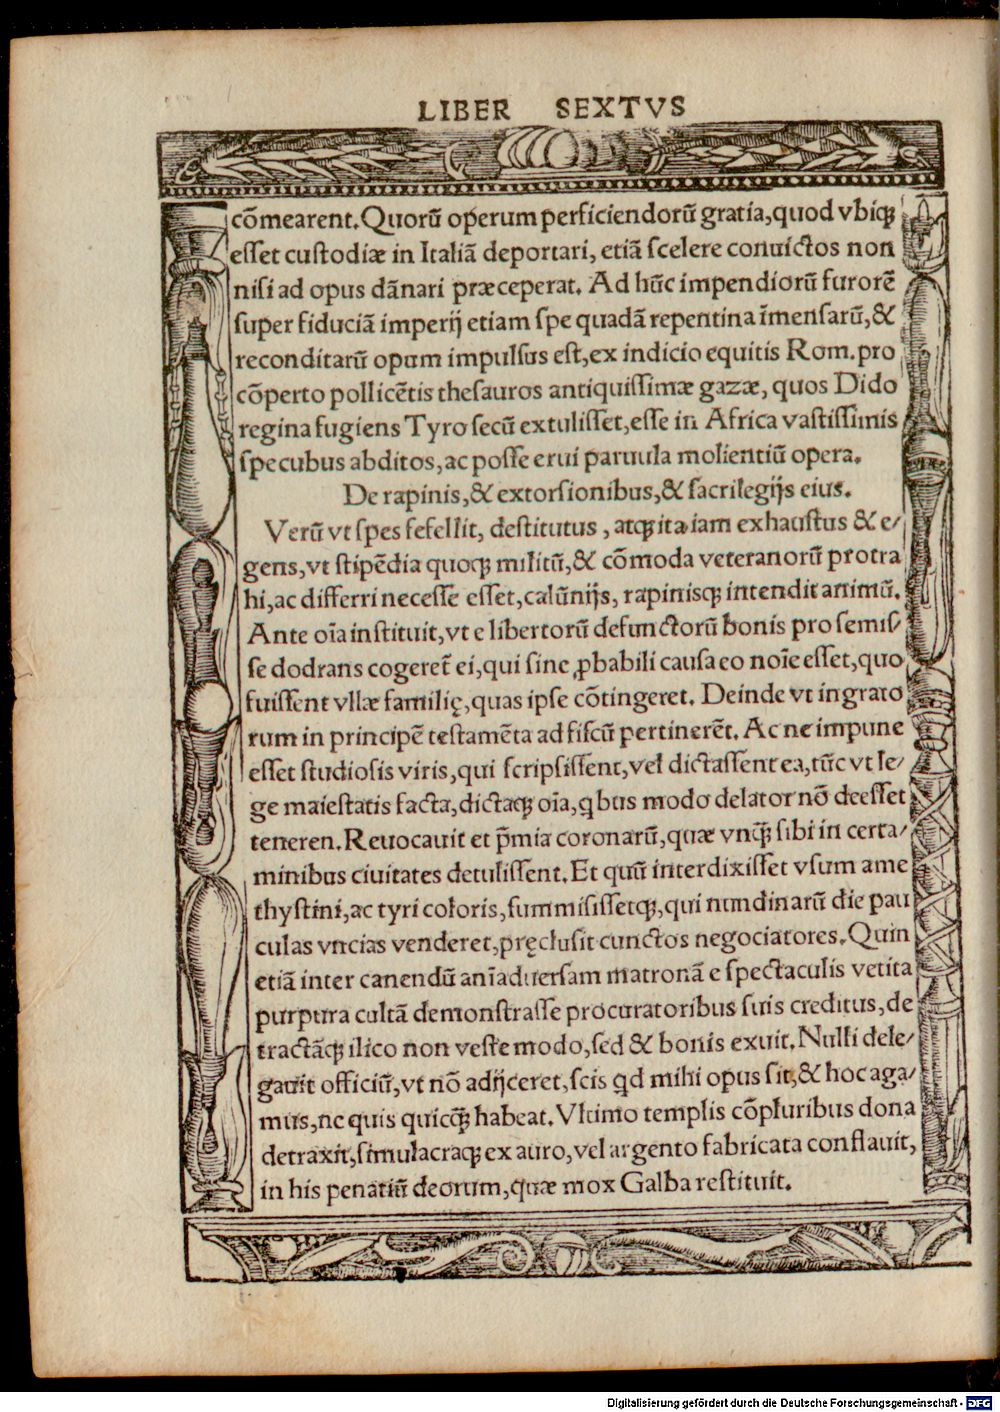 LIBER SEXTVS
cōmearent. Quorũ operum perficiendorũ gratia, quod vbiqꝫ
esset custodiæ in Italiã deportari, etiã scelere conuictos non
nisi ad opus dãnari præceperat. Ad hũc impendiorũ furorẽ
super fiduciã imperij etiam spe quadã repentina ĩmensarũ, &
reconditarũ opum impulsus est, ex indicio equitis Rom. pro
cõperto pollicẽtis thesauros antiquissimæ gazæ, quos Dido
regina fugiens Tyro secũ extulisset, esse in Africa vastissimis
specubus abditos, ac posse erui paruula molientiũ opera.
De rapinis, & extorsionibus, & sacrilegijs eius.
Verũ vt spes fefellit, destitutus, atqꝫ ita iam exhaustus & e/
gens, vt stipẽdia quoqꝫ militũ, & cõmoda veteranorũ protra
hi, ac differri necesse esset, calũnijs, rapinisqꝫ intendit animũ.
Ante oĩa instituit, vt e libertorũ defunctorũ bonis pro semis/
se dodrans cogeret̃ ei, qui sine ꝓbabili causa eo noĩe esset, quo
fuissent vllæ familię, quas ipse cõtingeret. Deinde vt ingrato
rum in principẽ testamẽta ad fiscũ pertinerẽt. Ac ne impune
esset studiosis viris, qui scripsissent, vel dictassent ea, tũc vt le/
ge maiestatis facta, dictaqꝫ oĩa, q̃bus modo delator nõ deesset
teneren. Reuocauit et p̃mia coronarũ, quæ vnqꝫ̃ sibi in certa/
minibus ciuitates detulissent. Et quũ interdixisset vsum ame
thystini, ac tyri coloris, summisissetqꝫ, qui nundinarũ die pau
culas vncias venderet, pręclusit cunctos negociatores. Quin
etiã inter canendũ anĩaduersam matronã e spectaculis vetita
purpura cultã demonstrasse procuratoribus suis creditus, de
tractãqꝫ ilico non veste modo, sed & bonis exuit. Nulli dele/
gauit officiũ, vt nõ adijceret, scis qd̃ mihi opus sit, & hoc aga/
mus, ne quis quicqꝫ̃ habeat. Vltimo templis cõpluribus dona
detraxit, simulacraqꝫ ex auro, vel argento fabricata conflauit,
in his penatiũ deorum, quæ mox Galba restituit.
Digitalisierung gefördert durch die Deutsche Forschungsgemeinschaft - DFG